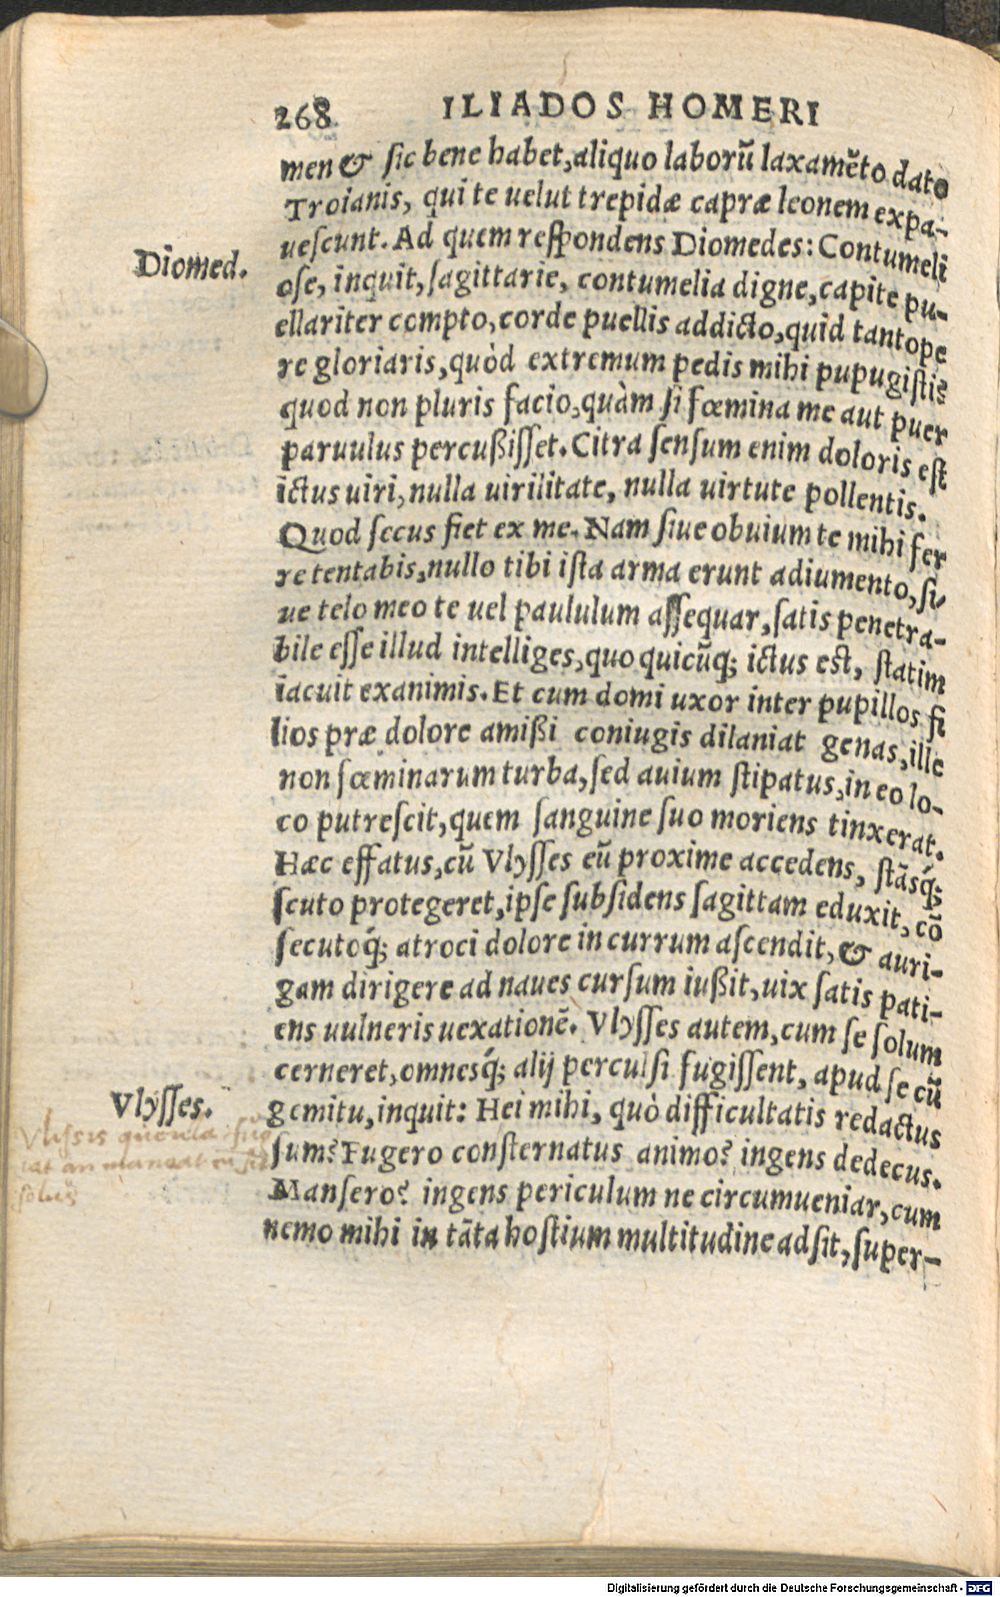 268 ILIADOS HOMERI
men & sic bene habet, aliquo laborũ laxamẽto dato
Troianis, qui te uelut trepidæ capræ leonem expa-
uescunt. Ad quem respondens Diomedes: Contumeli
Diomed.
ose, inquit, sagittarie, contumelia digne, capite pu-
ellariter compto, corde puellis addicto, quid tantope
re gloriaris, quòd extremum pedis mihi pupugistis
quod non pluris facio, quàm si fœmina me aut puer
paruulus percußisset. Citra sensum enim doloris est
ictus uiri, nulla uirilitate, nulla uirtute pollentis.
Quod secus fiet ex me. Nam siue obuium te mihi fer
re tentabis, nullo tibi ista arma erunt adiumento, si-
ue telo meo te uel paululum assequar, satis penetra-
bile esse illud intelliges, quo quicũq; ictus est, statim
iacuit exanimis. Et cum domi uxor inter pupillos fi
lios præ dolore amißi coniugis dilaniat genas, ille
non fœminarum turba, sed auium stipatus, in eo lo-
co putrescit, quem sanguine suo moriens tinxerat.
Hæc effatus, cũ Vlysses eũ proxime accedens, stãsq́;
scuto protegeret, ipse subsidens sagittam eduxit, cõ
secutoq́; atroci dolore in currum ascendit, & auri-
gam dirigere ad naues cursum iußit, uix satis pati-
ens uulneris uexationẽ. Vlysses autem, cum se solum
cerneret, omnesq́; alij perculsi fugissent, apud se cũ
Vlysses.
gemitu, inquit: Hei mihi, quò difficultatis redactus
Vlissis querula: fug
iat an maneat cũ sit
solus
sum? Fugero consternatus animo? ingens dedecus.
Mansero? ingens periculum ne circumueniar, cum
nemo mihi in tãta hostium multitudine adsit, super-
Digitalisierung gefördert durch die Deutsche Forschungsgemeinschaft - DFG